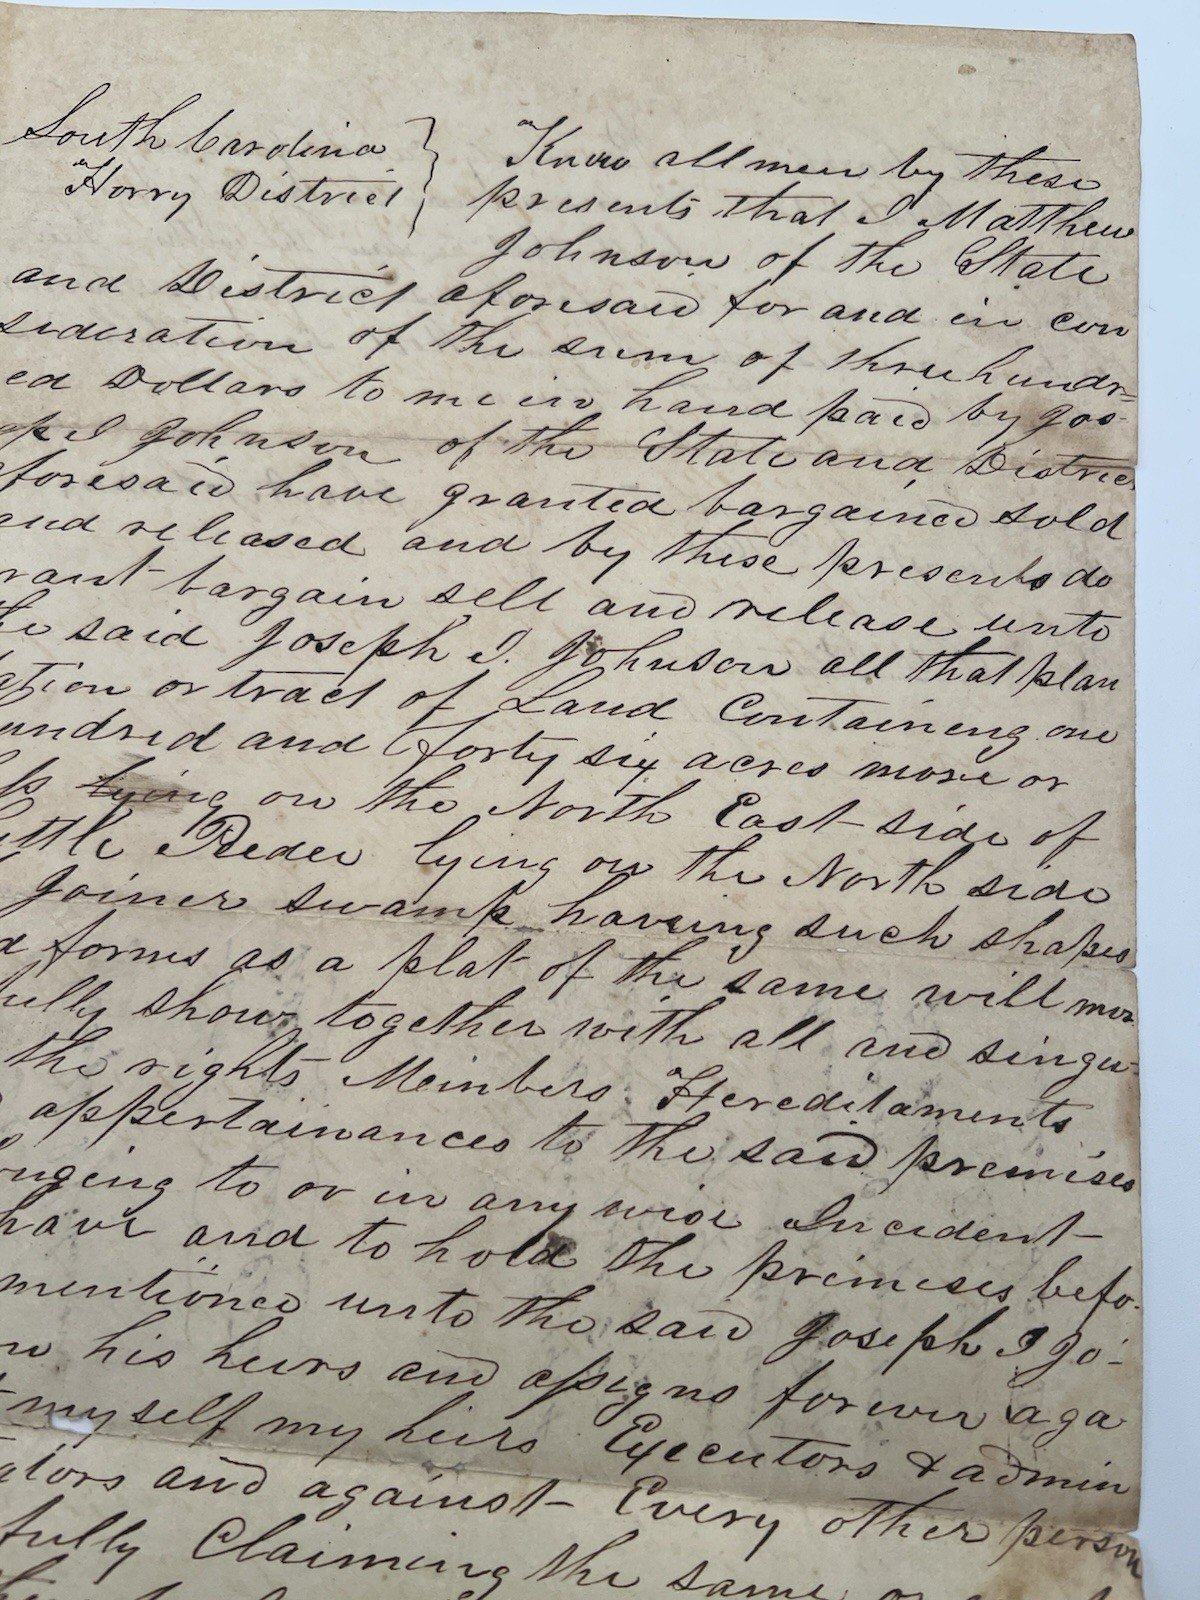 South Carolina } Know all men by these
Horry District } presents that I Matthew
Johnson of the State
and District aforesaid for and in con
sideration of the sum of three hundr=
ed Dollars to me in hand paid by Jos-
eph I Johnson of the State and District
aforesaid have granted bargained sold
and released and by these presents do
rant bargain sell and release unto
he said Joseph I. Johnson all that plan
ation or tract of Land Containeng one
undred and forty six acres more or
ss lying on the North East side of
ittle Pedee lying on the North side
Joiner swamp having such shapes
d forms as a plat of the same will mor
ully show together with all and singu-
the rights Meinbers Hereditaments
appertainances to the said premises
onging to or in any wise Incedent
have and to hold the premeses befo-
mentioned unto the said Joseph I Jo-
n his heirs and assigns forever aga
t myself my heirs Executors & admin
ators and against Every other person
fully Claiming the same or